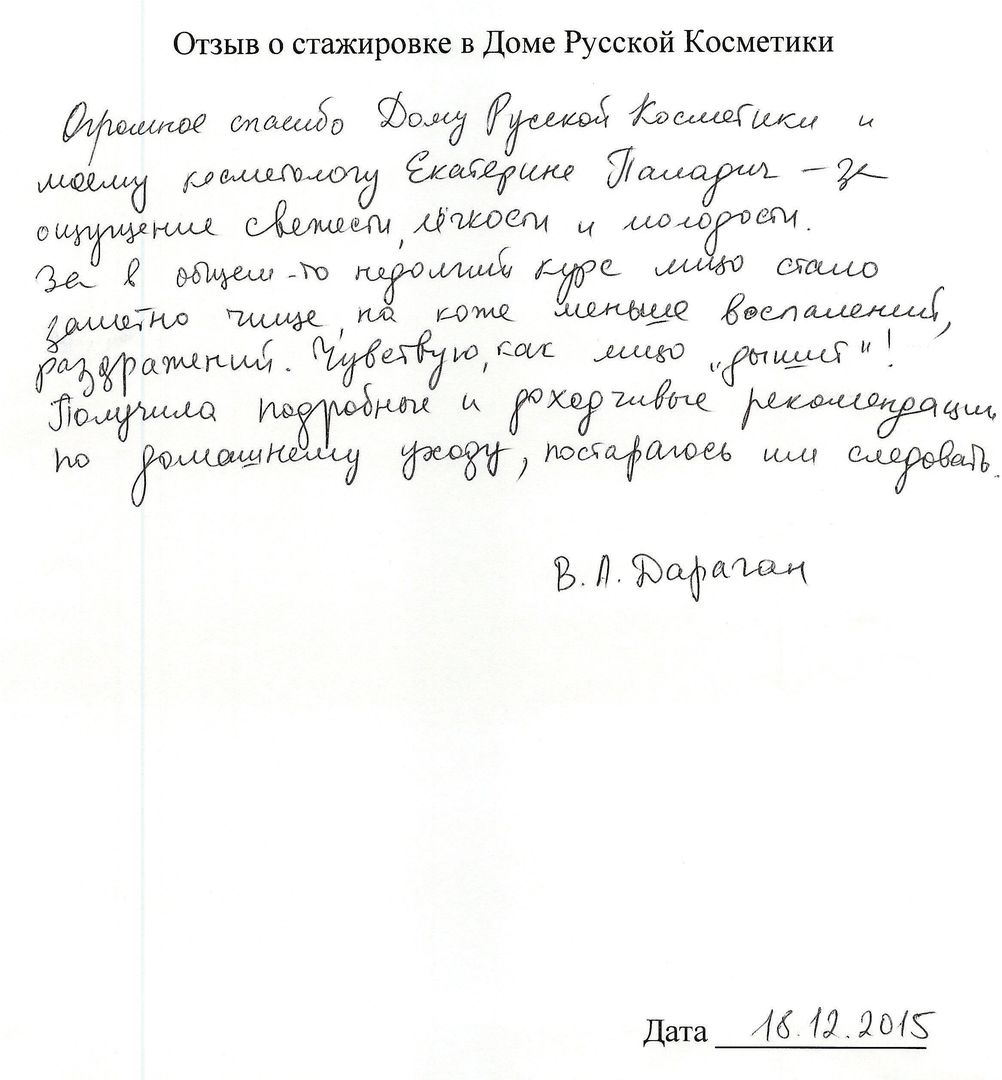 Отзыв о стажировке в Доме Русской Косметики
Огромное спасибо Дому Русской Косметики и
моему косметологу Екатерине Паладич – за
ощущение свежести, лёгкости и молодости.
За в общем-то недолгий курс лицо стало
заметно чище, на коже меньше воспалений,
раздражений. Чувствую, как лицо „дышит"!
Получила подробные и доходчивые рекомендации
по домашнему уходу, постараюсь им следовать.
В. А. Дараган
Дата 18.12.2015